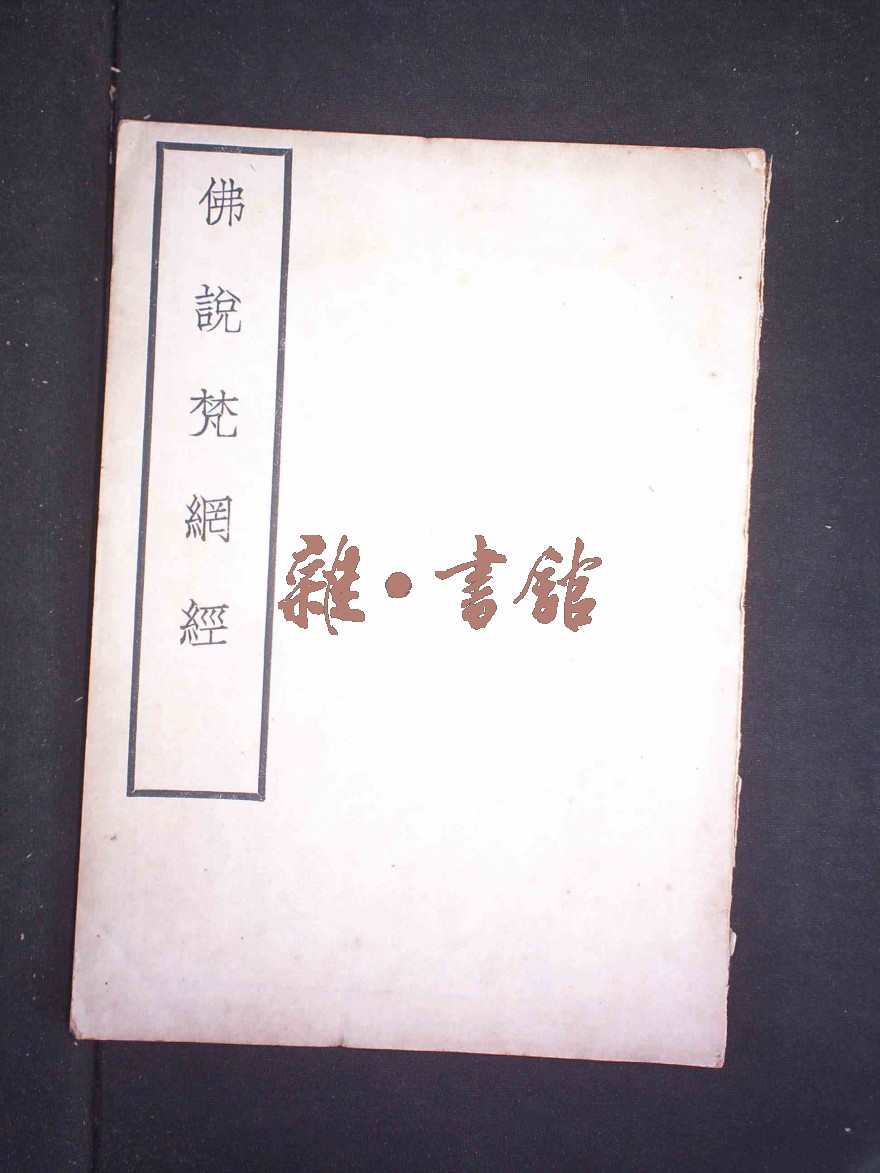 佛說梵網經
雜·書館